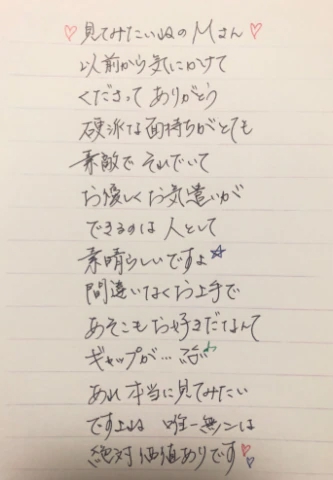 ♡見てみたいねの Mさん♡
以前から気にかけて
くださって ありがとう
硬派な面持ちがとても
素敵で それでいて
お優しくお気遣いが
できるのは 人として
素晴らしいですよ☆
間違いなくお上手で
あそこもお好きだなんて
ギャップが…
あれ 本当に見てみたい
ですよね 唯一無二は
絶対価値ありです♡♡